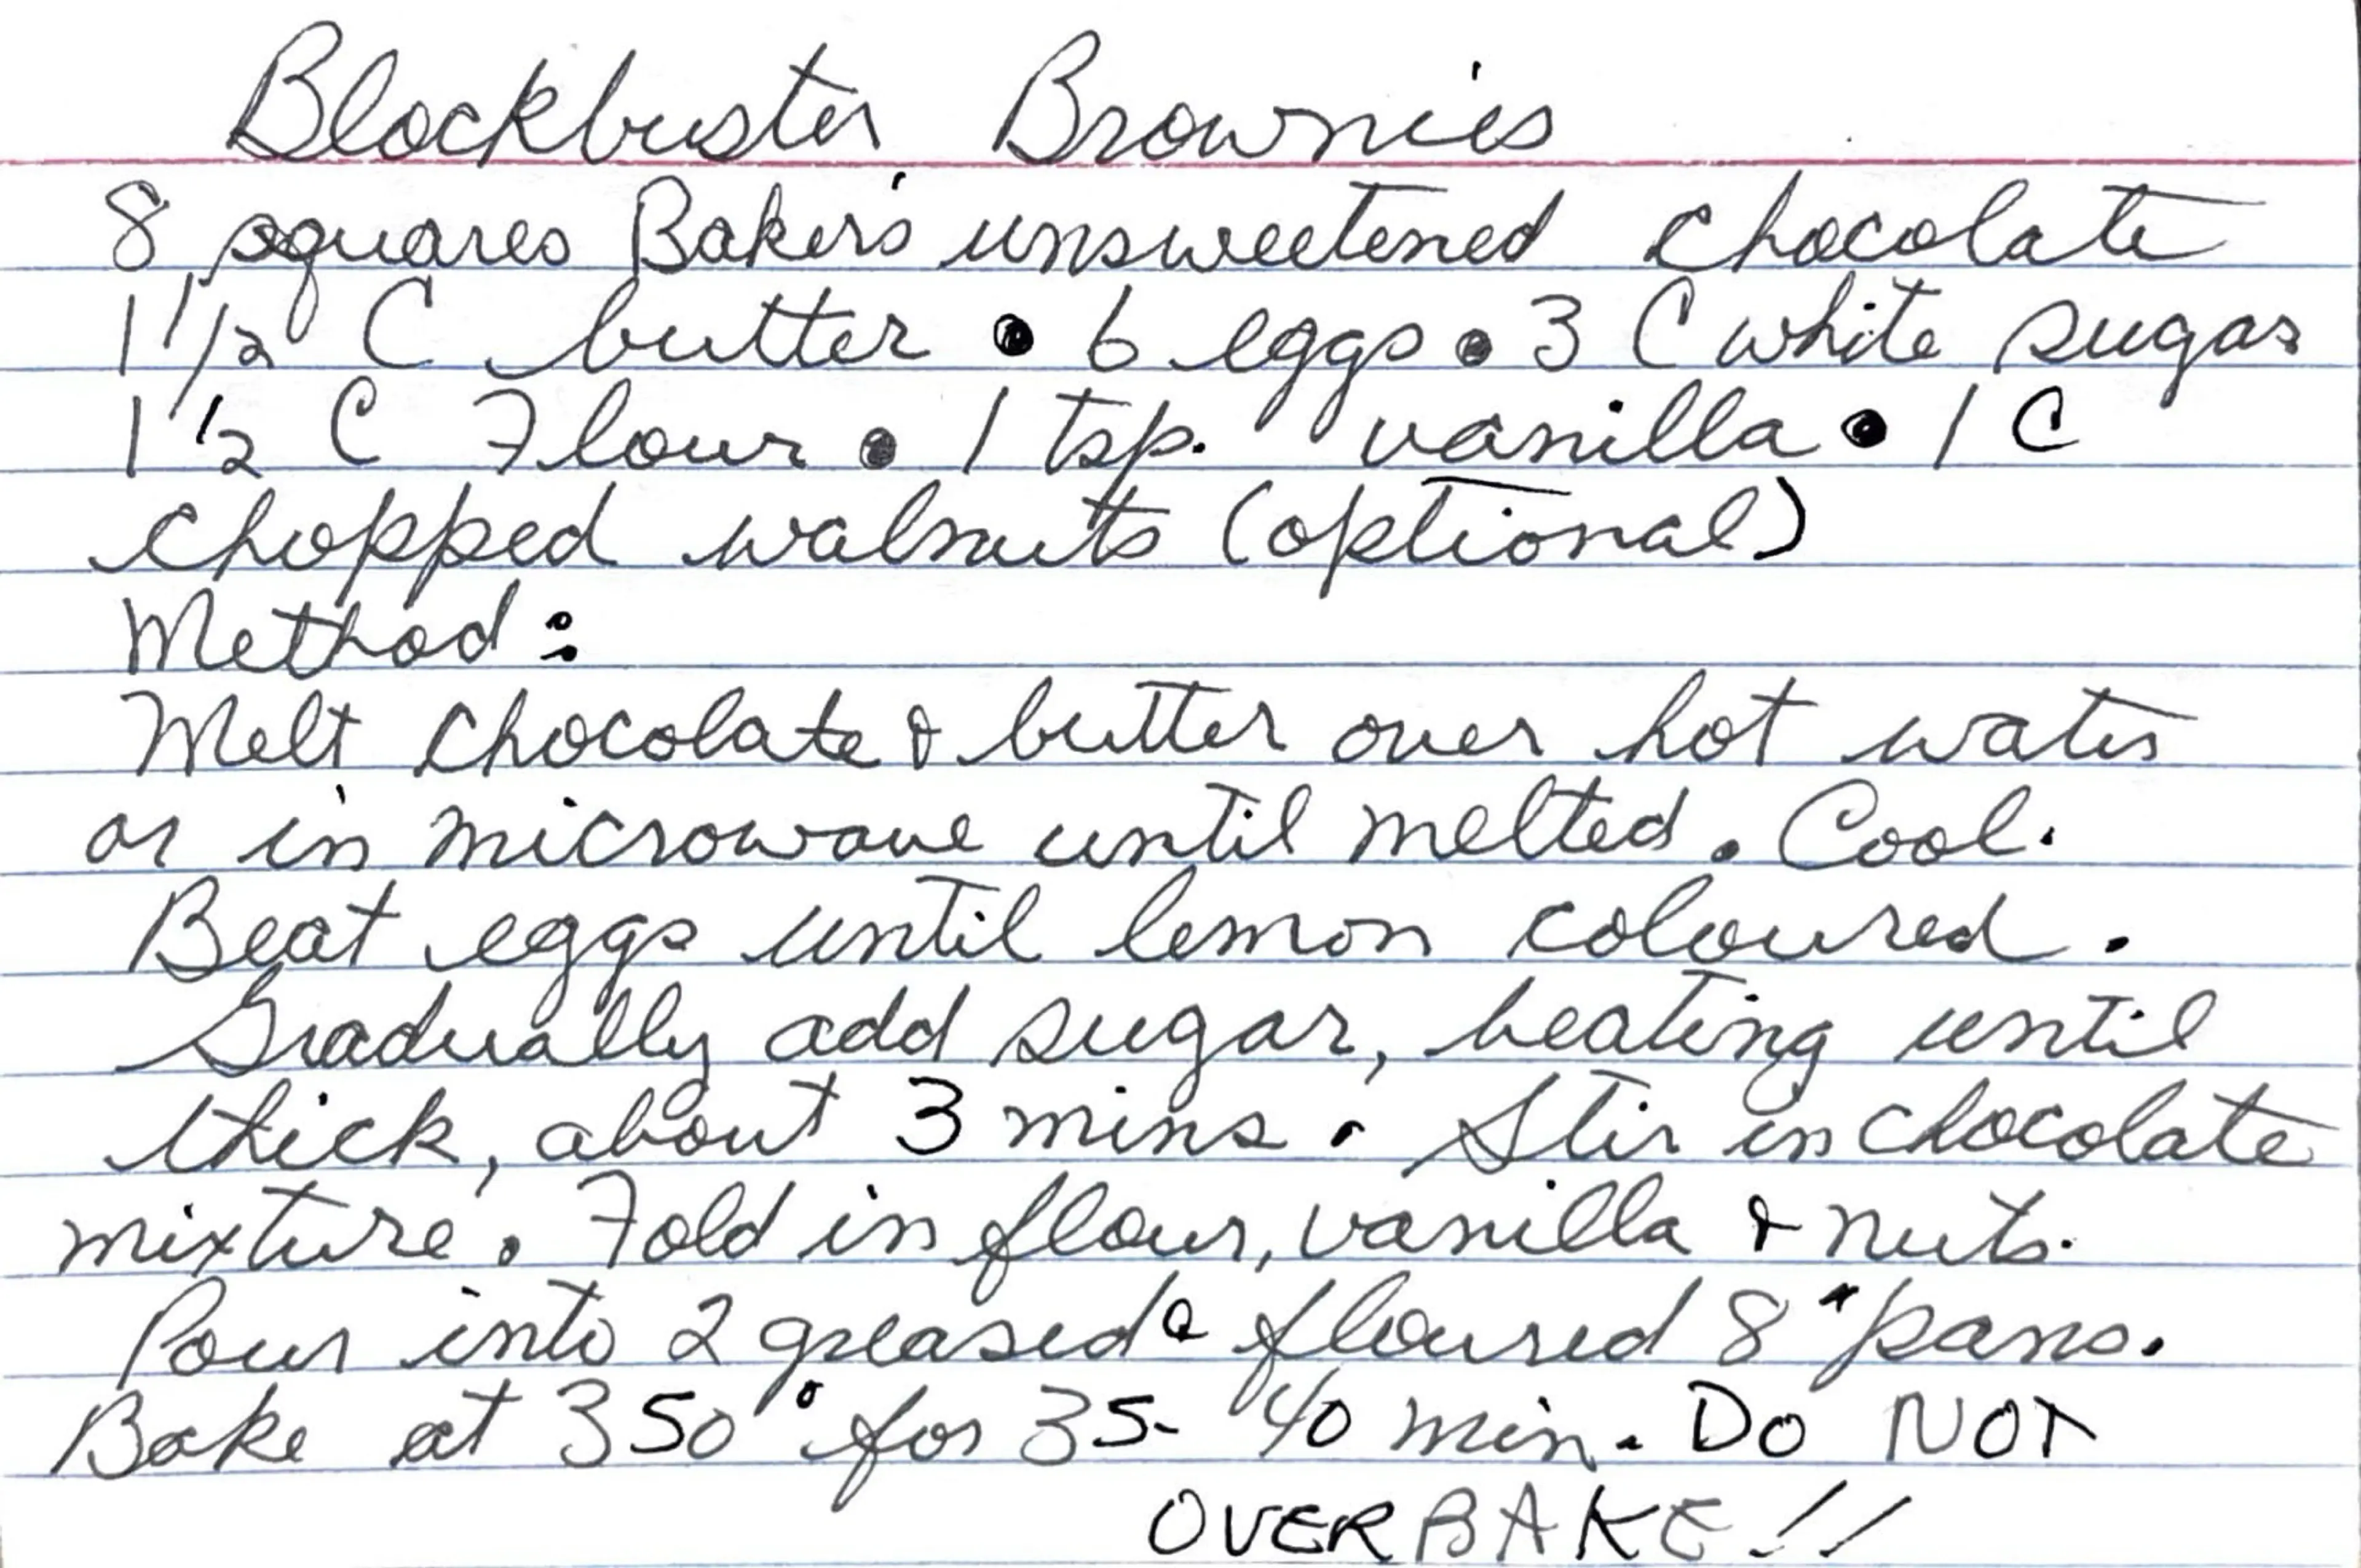 Blockbuster Brownies
8 squares Baker's unsweetened chocolate
1 1/2 C butter • 6 eggs • 3 C white sugar
1 1/2 C Flour • 1 tsp. vanilla • 1 C
chopped walnuts (optional)
Method:
Melt chocolate & butter over hot water
or in microwave until melted. Cool.
Beat eggs until lemon coloured.
Gradually add sugar, beating until
thick, about 3 mins. Stir in chocolate
mixture. Fold in flour, vanilla & nuts.
Pour into 2 greased & floured 8" pans.
Bake at 350° for 35-40 min. DO NOT
OVERBAKE!!